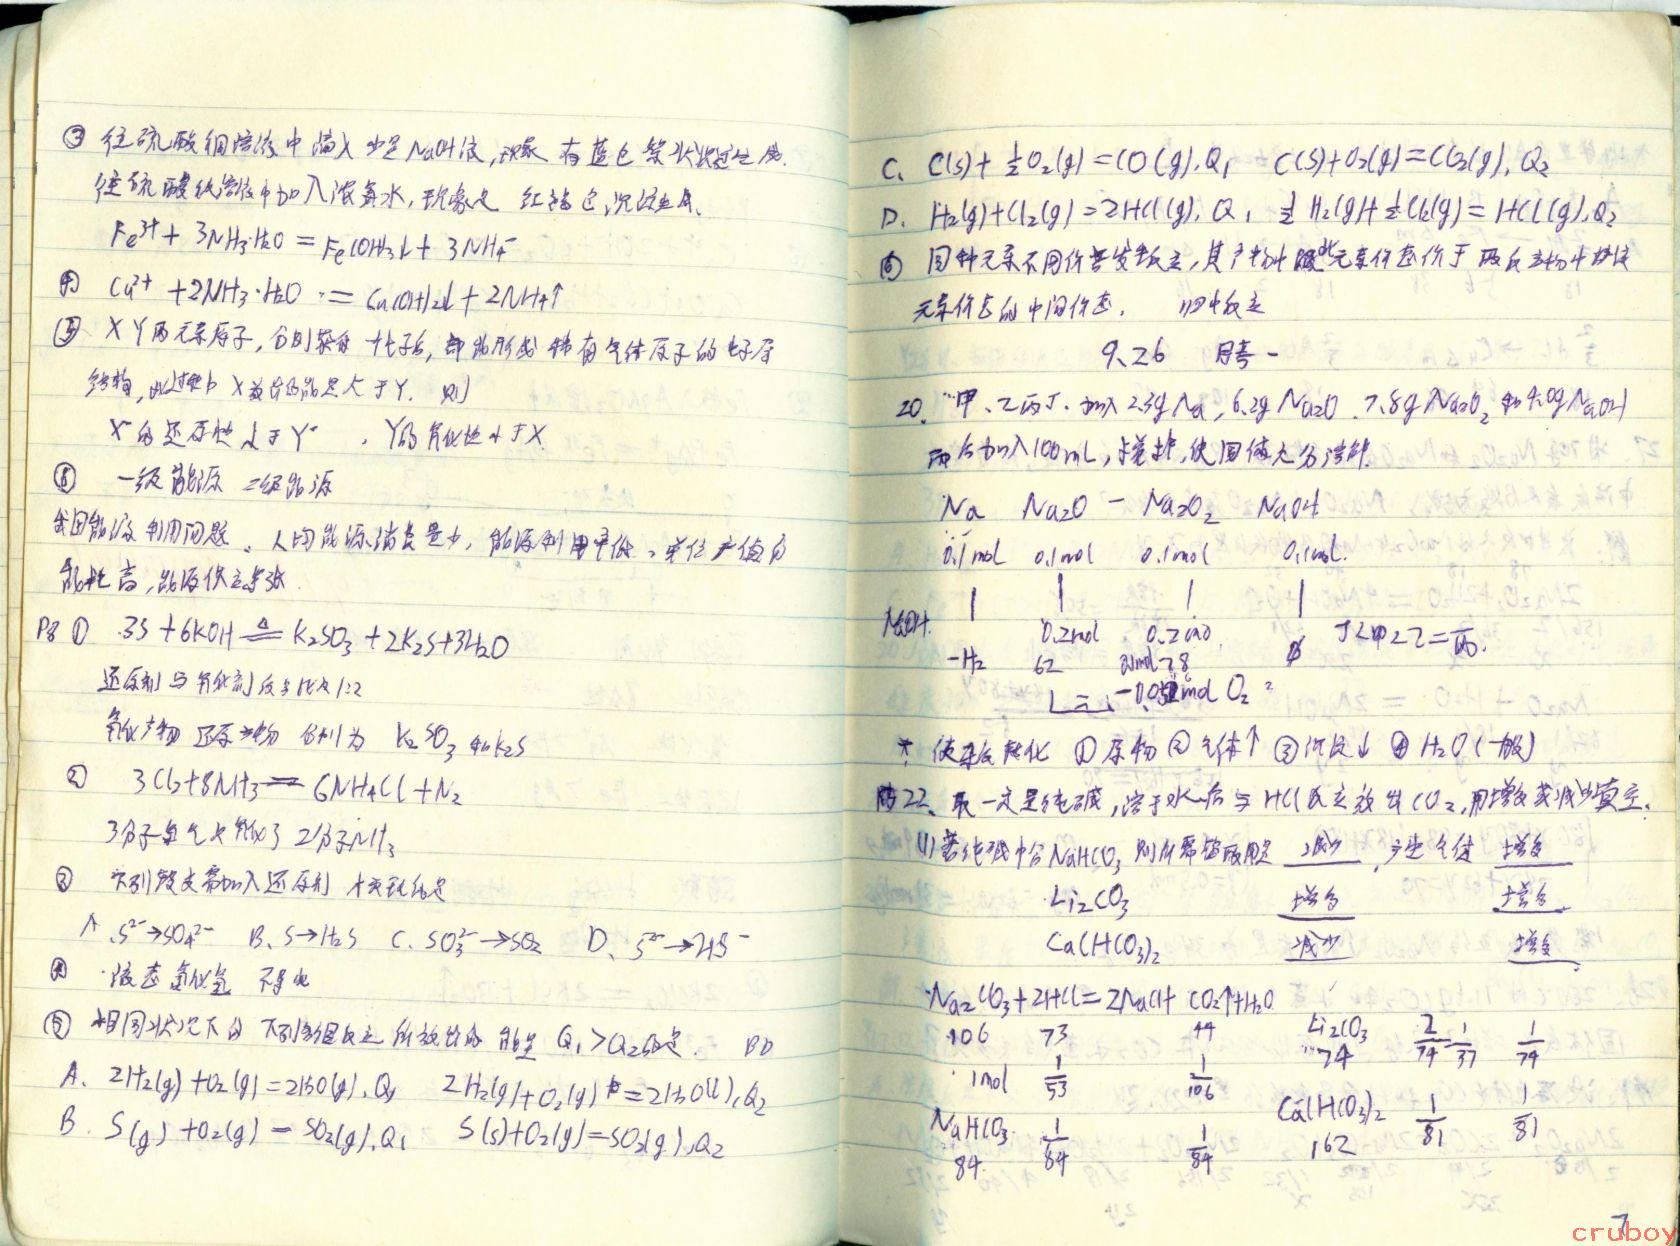 ③ 往硫酸铜溶液中滴入少足NaOH液,现象 有蓝色絮状沉淀生成.
往硫酸铁溶液中加入浓氨水,现象是 红褐色沉淀生成、
Fe³⁺ + 3NH₃·H₂O = Fe(OH)₃↓ + 3NH₄⁻
④ Cu²⁺ + 2NH₃·H₂O = Cu(OH)₂↓ + 2NH₄↑
⑤ X Y两元素原子,分别获得一个电子后,都能形成稀有气体原子的电子层
结构,此过程中 X放出的能量大于Y. 则
X⁻的还原性小于Y⁻ , Y的氧化性小于X
⑥ 一级能源 二级能源
我国能源利用问题、人均能源消费量少,能源利用率低、单位产值的
能耗高,能源供应紧张.
P8 ① 3S + 6KOH ≜ K₂SO₃ + 2K₂S + 3H₂O
还原剂与氧化剂 1:2
氧化产物 还原产物 分别为 K₂SO₃ 和 K₂S
② 3Cl₂ + 8NH₃ = 6NH₄Cl + N₂
3分子氯气 氧化了 2分子NH₃
③ 下列转变需加入还原剂才实现的是
A、S²⁻→SO₄²⁻ B、S→H₂S C、SO₃²⁻→SO₂ D、S²⁻→HS⁻
④ 液态氯化氢 不导电
⑤ 相同状况下的 下列各组反应所放出的能量 Q₁>Q₂的是. BD
A、2H₂(g)+O₂(g)=2H₂O(g),Q₁ 2H₂(g)+O₂(g)=2H₂O(l),Q₂
B、S(g)+O₂(g)=SO₂(g),Q₁ S(s)+O₂(g)=SO₂(g),Q₂
C、C(s)+½O₂(g)=CO(g),Q₁ C(s)+O₂(g)=CO₂(g),Q₂
D、H₂(g)+Cl₂(g)=2HCl(g),Q₁ ½H₂(g)+½Cl₂(g)=HCl(g),Q₂
⑥ 同种元素不同价态发生反应,其产物中该元素价态介于两反应物中该
元素价态的中间价态. 归中反应
9.26 月考一
20. 甲、乙丙丁.加入2.3gNa,6.2gNa₂O、7.8gNa₂O₂和4.0gNaOH
而后加入100mL,搅拌,使固体充分溶解.
Na Na₂O Na₂O₂ NaOH
0.1mol 0.1mol 0.1mol 0.1mol.
NaOH 0.2mol 0.2mo 丁<甲<乙=丙.
-H₂ 62
mol O₂
* 使某反应转化 ①原物 ②气体↑ ③沉淀↓ ④H₂O(一般)
22、取一定量纯碱,溶于水后与HCl反应放出CO₂,用增多或减少填空.
(1)若纯碱中含NaHCO₃ 则所需盐酸用量 减少,产生气体 增多
Li₂CO₃ 增多 增多
Ca(HCO₃)₂ 减少 增多
Na₂CO₃+2HCl=2NaCl+CO₂↑+H₂O
106 73 44 Li₂CO₃ 2/74=1/37 1/74
74
1mol 1/53 1/106
NaHCO₃ 1/84 1/84 Ca(HCO₃)₂ 1/81 1/81
84 162
7
cruboy